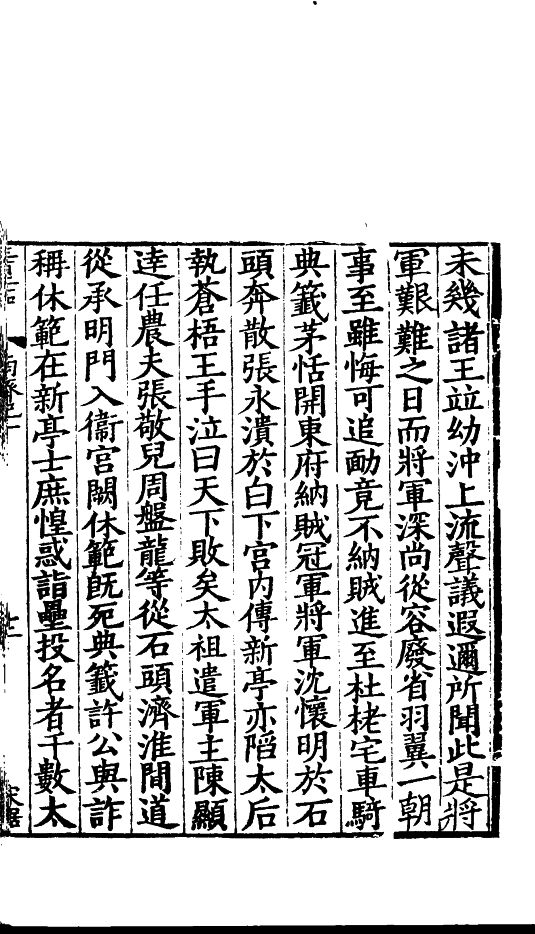 未幾諸王竝幼沖上流聲議遐邇所聞此是將
軍艱難之日而將軍深尚從容廢省羽翼一朝
事至雖悔可追勔竟不納賊進至杜姥宅車騎
典籤茅恬開東府納賊冠軍將軍沈懷明於石
頭奔散張永潰於白下宮內傳新亭亦䧟太后
執蒼梧王手泣曰天下敗矣太祖遣軍主陳顯
逹任農夫張敬兒周盤龍等從石頭濟淮間道
從承明門入衞宮闕休範旣死典籤許公與詐
稱休範在新亭士庶惶惑詣壘投名者千數太